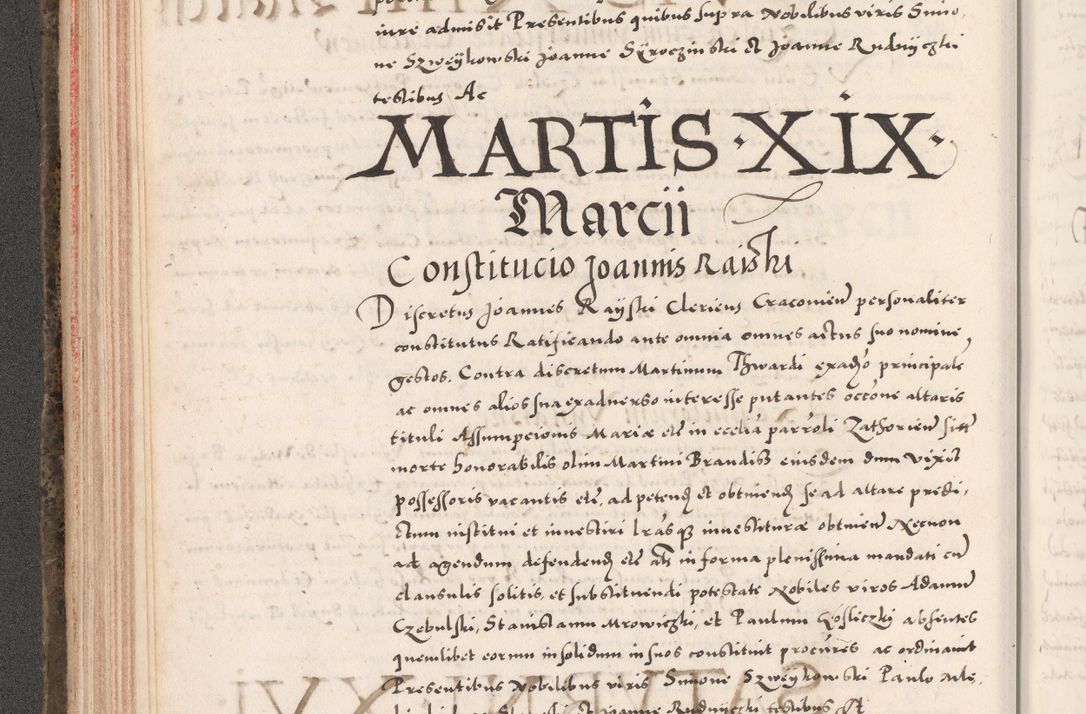 iure admisit Presentibus quibus supra Nobilibus viris Simo,
ne Szweÿkowski Joanne Sÿroczinski et Joanne Rudnÿczki
testibus Ac
MARTIS · XIX ·
Marcii
Constitucio Joannis Raisski
Discretus Joannes Raÿski Clericus Cracovien personaliter
constitutus Ratificando ante omnia omnes actus suo nomine
gestos. Contra discretum Martinum Thwardi ex adverso principale
ac omnes alios sua ex adverso interesse putantes occone altaris
tituli Assumpcionis Mariæ etc in ecclia parroli Zathorien siti
morte honorabilis olim Martini Brandiss eiusdem dum vixit
possessoris vacantis etc, ad petend et obtinend se ad altare predi,
ctum institui et investiri lrasq investituræ obtinen Necnon
ad agendum defendend etc als in forma plenissima mandati cu
clausulis solitis, et substituendi potestate Nobiles viros Adamum
Czebulski, Stanislaum Mrowiczki, et Paulum Gosliczki absentes
quemlibet eorum in solidum in suos constituit procures ac ordinavit
Presentibus Nobilibus viris Simone Szweÿkowski Paulo Mle,
et Joanne Rudnÿczki testibus Ac